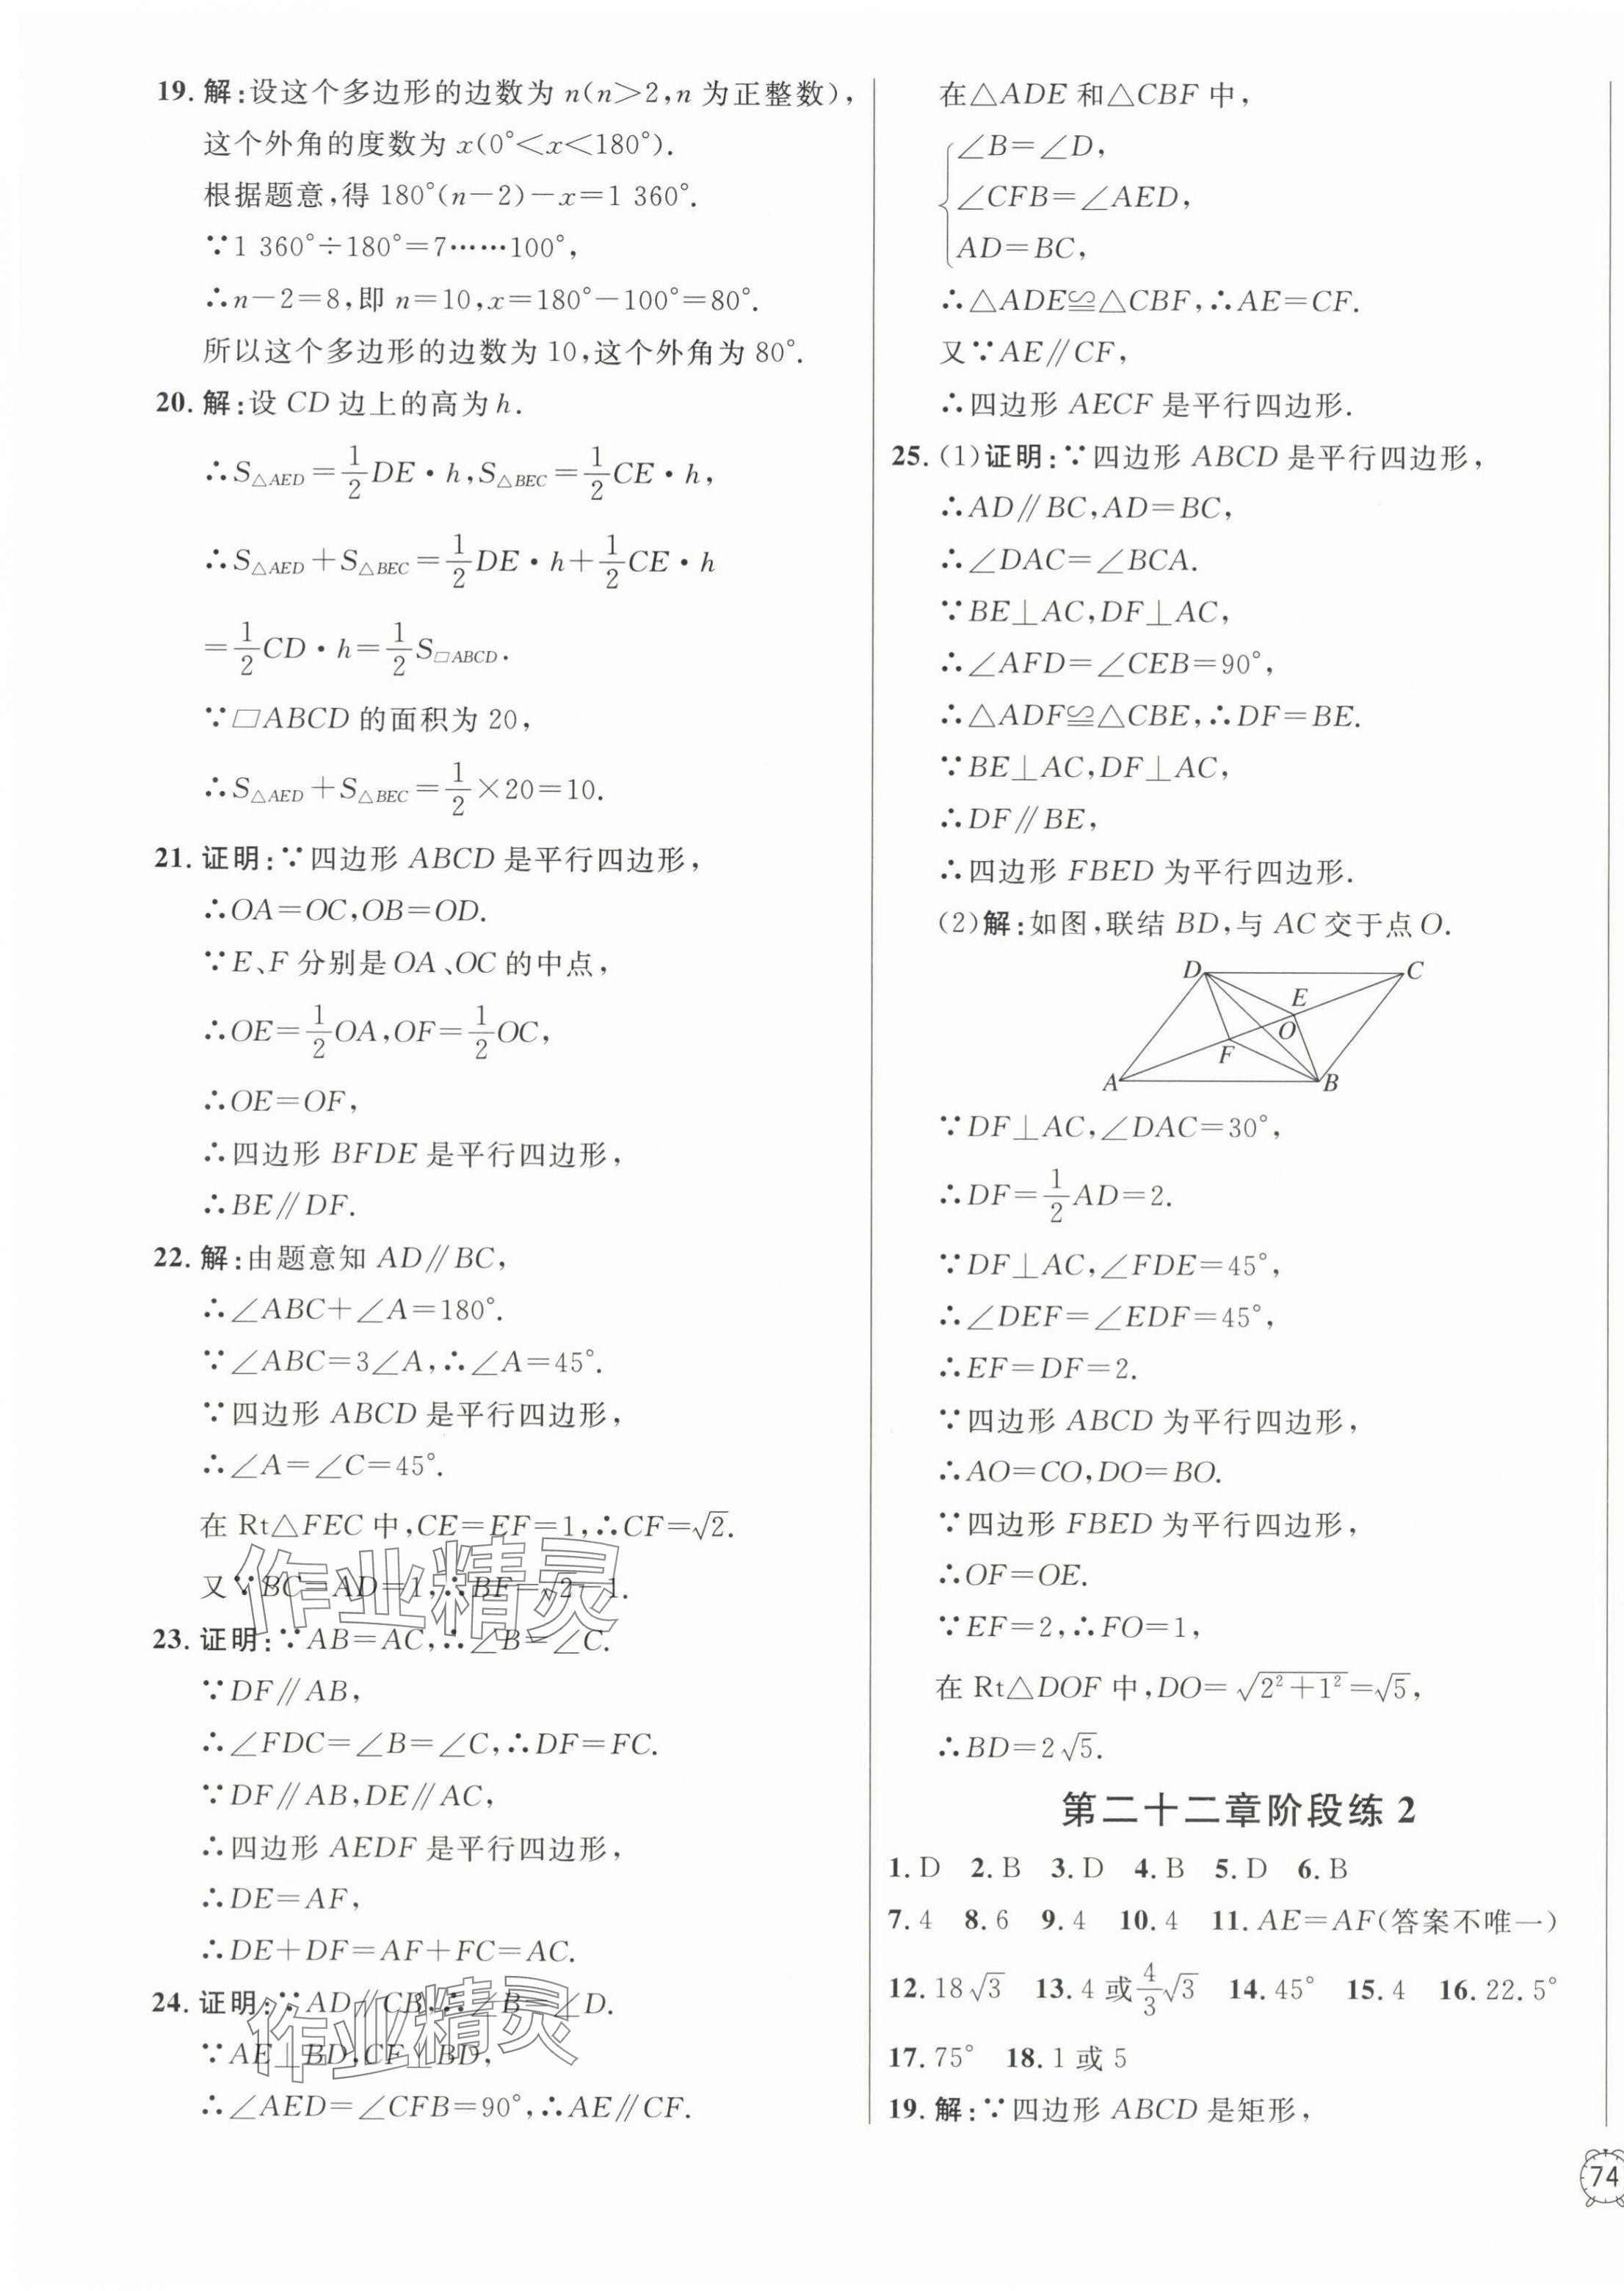 19. 解:设这个多边形的边数为 n(n>2,n 为正整数),
这个外角的度数为 x(0°<x<180°).
根据题意,得 180°(n-2)-x=1 360°.
∵1 360°÷180°=7……100°,
∴n-2=8,即 n=10,x=180°-100°=80°.
所以这个多边形的边数为 10,这个外角为 80°.
20. 解:设 CD 边上的高为 h.
∴S△AED=1/2DE·h,S△BEC=1/2CE·h,
∴S△AED+S△BEC=1/2DE·h+1/2CE·h
=1/2CD·h=1/2S□ABCD.
∵□ABCD 的面积为 20,
∴S△AED+S△BEC=1/2×20=10.
21. 证明:∵四边形 ABCD 是平行四边形,
∴OA=OC,OB=OD.
∵E、F 分别是 OA、OC 的中点,
∴OE=1/2OA,OF=1/2OC,
∴OE=OF,
∴四边形 BFDE 是平行四边形,
∴BE∥DF.
22. 解:由题意知 AD∥BC,
∴∠ABC+∠A=180°.
∵∠ABC=3∠A,∴∠A=45°.
∵四边形 ABCD 是平行四边形,
∴∠A=∠C=45°.
在 Rt△FEC 中,CE=EF=1,∴CF=√2.
又∵BC=AD=1,∴BF=√2-1.
23. 证明:∵AB=AC,∴∠B=∠C.
∵DF∥AB,
∴∠FDC=∠B=∠C,∴DF=FC.
∵DF∥AB,DE∥AC,
∴四边形 AEDF 是平行四边形,
∴DE=AF,
∴DE+DF=AF+FC=AC.
24. 证明:∵AD∥CB,∴∠B=∠D.
∵AE⊥BD,CF⊥BD,
∴∠AED=∠CFB=90°,∴AE∥CF.
作业精灵
作业精灵
在△ADE 和△CBF 中,
∠B=∠D,
∠CFB=∠AED,
AD=BC,
∴△ADE≌△CBF,∴AE=CF.
又∵AE∥CF,
∴四边形 AECF 是平行四边形.
25. (1)证明:∵四边形 ABCD 是平行四边形,
∴AD∥BC,AD=BC,
∴∠DAC=∠BCA.
∵BE⊥AC,DF⊥AC,
∴∠AFD=∠CEB=90°,
∴△ADF≌△CBE,∴DF=BE.
∵BE⊥AC,DF⊥AC,
∴DF∥BE,
∴四边形 FBED 为平行四边形.
(2)解:如图,联结 BD,与 AC 交于点 O.
D C
E
O
F
A B
∵DF⊥AC,∠DAC=30°,
∴DF=1/2AD=2.
∵DF⊥AC,∠FDE=45°,
∴∠DEF=∠EDF=45°,
∴EF=DF=2.
∵四边形 ABCD 为平行四边形,
∴AO=CO,DO=BO.
∵四边形 FBED 为平行四边形,
∴OF=OE.
∵EF=2,∴FO=1,
在 Rt△DOF 中,DO=√(2²+1²)=√5,
∴BD=2√5.
第二十二章阶段练 2
1. D 2. B 3. D 4. B 5. D 6. B
7. 4 8. 6 9. 4 10. 4 11. AE=AF(答案不唯一)
12. 18√3 13. 4 或 4/3√3 14. 45° 15. 4 16. 22.5°
17. 75° 18. 1 或 5
19. 解:∵四边形 ABCD 是矩形,
74